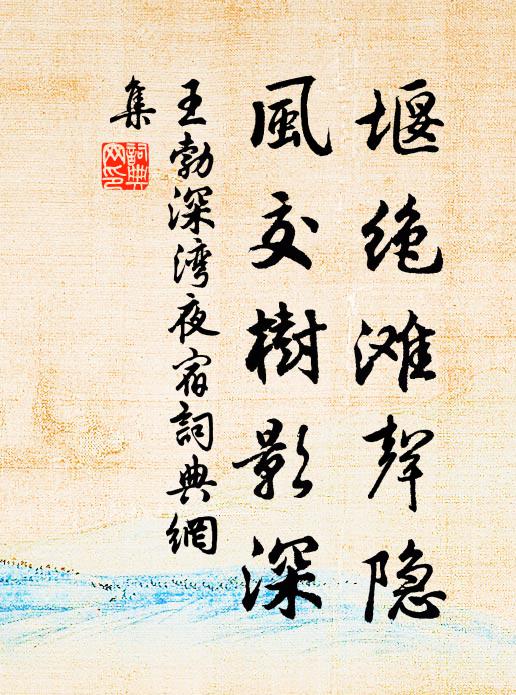 堰绝滩聲隐
風交樹影深
王勃深湾夜宿詞典網
集
詞典
网印